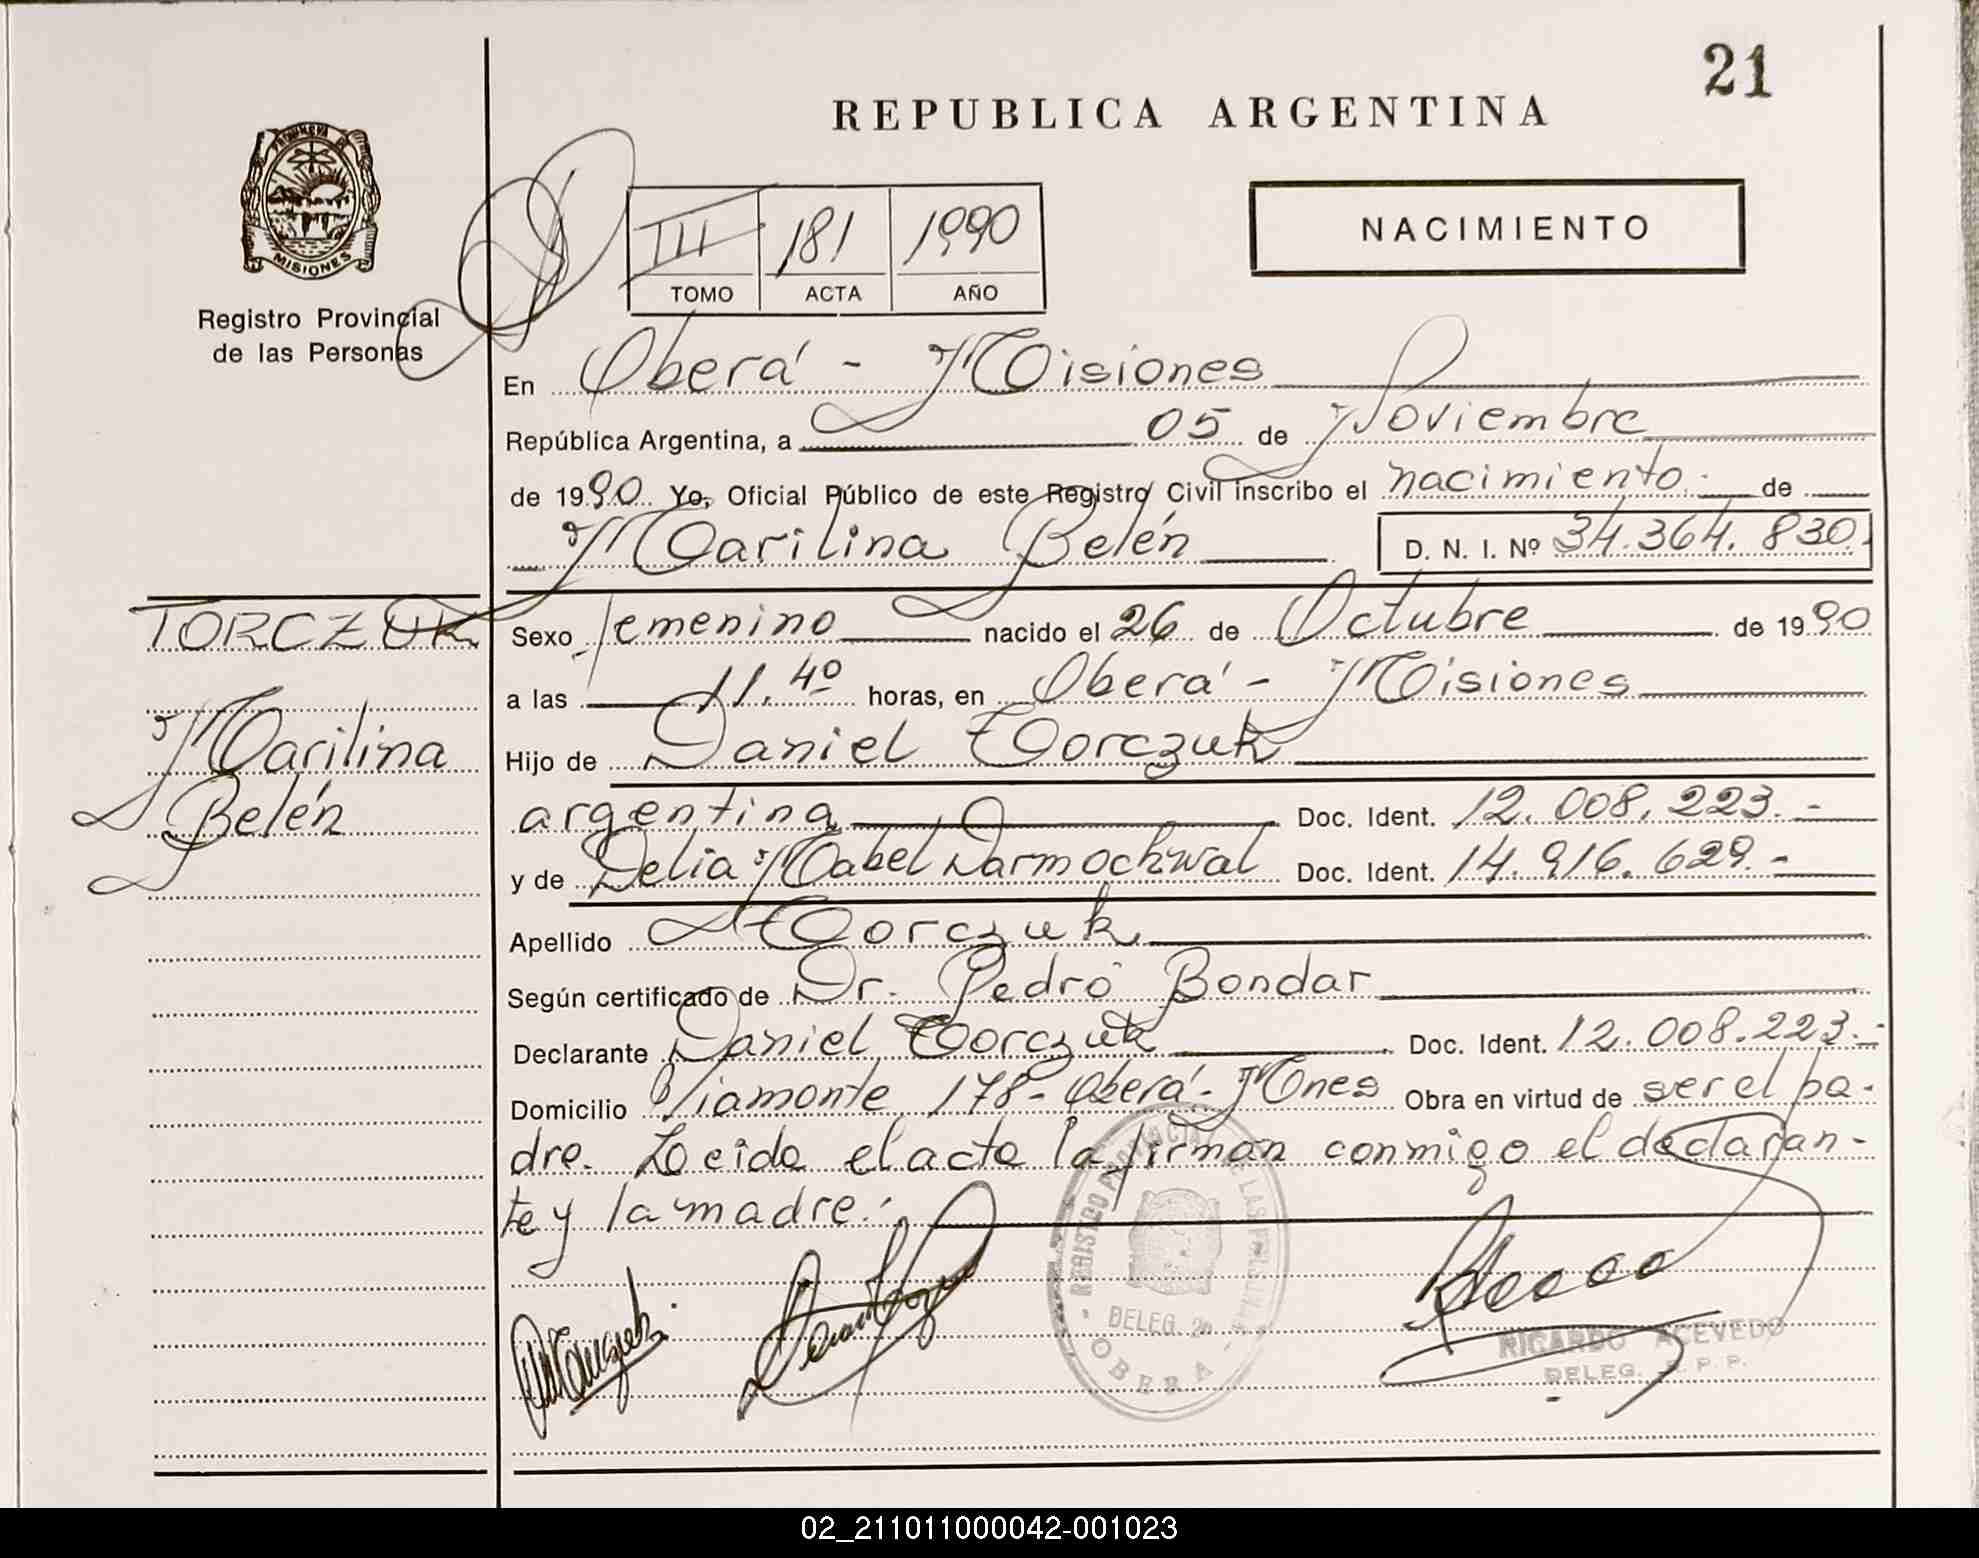 21
REPUBLICA ARGENTINA
NACIMIENTO
III 181 1990
TOMO ACTA AÑO
MISIONES
Registro Provincial
de las Personas
En Oberá - Misiones
República Argentina, a 05 de Noviembre
de 1990 Yo, Oficial Público de este Registro Civil inscribo el nacimiento de
Marilina Belén D. N. I. Nº 34.364.830.
TORCZUK
Marilina
Belén
Sexo femenino nacido el 26 de Octubre de 1990
a las 11.40 horas, en Oberá - Misiones
Hijo de Daniel Torczuk
argentina Doc. Ident. 12.008.223.-
y de Delia Mabel Darmochwal Doc. Ident. 14.916.629.-
Apellido Torczuk
Según certificado de Dr. Pedro Bondar
Declarante Daniel Torczuk Doc. Ident. 12.008.223.-
Domicilio Viamonte 178 - Oberá - Mnes Obra en virtud de ser el pa-
dre. Leida el acta la firman conmigo el declaran-
te y la madre.-
REGISTRO PROVINCIAL DE LAS PERSONAS
DELEG. 2ª
- OBERA -
RICARDO ACEVEDO
DELEG. R. P. P.
02_211011000042-001023